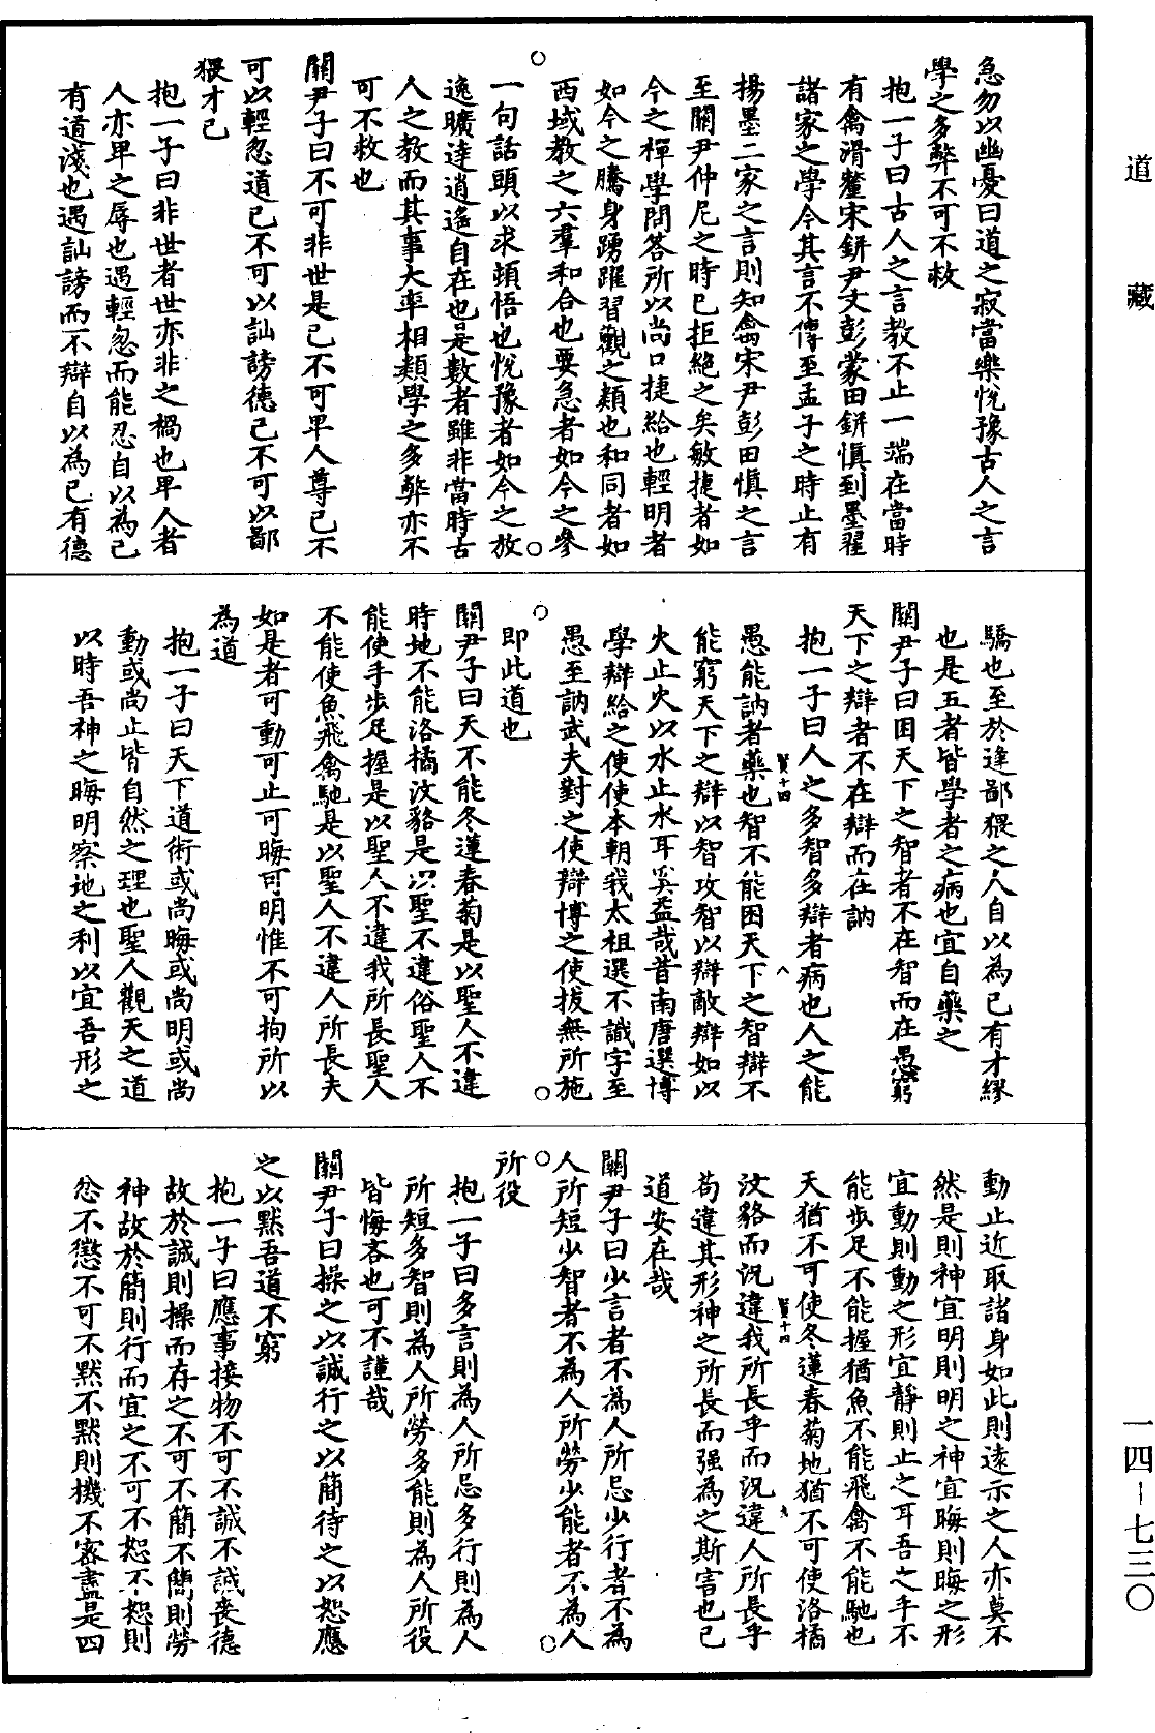 道藏
急勿以幽憂曰道之寂當樂恱豫古人之言
學之多弊不可不救
抱一子曰古人之言教不止一端在當時
有禽滑釐宋鈃尹文彭蒙田鈃慎到墨翟
諸家之學今其言不傳至孟子之時止有
揚墨二家之言則知禽宋尹彭田慎之言
至關尹仲尼之時已拒絶之矣敏捷者如
今之禪學問答所以尚口捷給也輕明者
如今之騰身踴躍習觀之類也和同者如
西域教之六羣和合也要急者如今之參
一句話頭以求頓悟也恱豫者如今之放
逸曠逹逍遙自在也是數者雖非當時古
人之教而其事大率相類學之多弊亦不
可不救也
關尹子曰不可非世是己不可卑人尊己不
可以輕忽道己不可以訕謗德己不可以鄙
猥才己
抱一子曰非世者世亦非之禍也卑人者
人亦卑之辱也遇輕忽而能忍自以為己
有道淺也遇訕謗而不辯自以為己有德
驕也至於逢鄙猥之人自以為己有才繆
也是五者皆學者之病也宜自藥之
關尹子曰困天下之智者不在智而在愚窮
天下之辯者不在辯而在訥
抱一子曰人之多智多辯者病也人之能
愚能訥者藥也智不能困天下之智辯不
能窮天下之辯以智攻智以辯敵辯如以
火止火以水止水耳奚益哉昔南唐選博
學辯給之使使本朝我太祖選不識字至
愚至訥武夫對之使辯博之使拔無所施
即此道也
關尹子曰天不能冬蓮春菊是以聖人不違
時地不能洛橘汶貉是以聖不違俗聖人不
能使手步足握是以聖人不違我所長聖人
不能使魚飛禽馳是以聖人不違人所長夫
如是者可動可止可晦可明惟不可拘所以
為道
抱一子曰天下道術或尚晦或尚明或尚
動或尚止皆自然之理也聖人觀天之道
以時吾神之晦明察地之利以宜吾形之
動止近取諸身如此則遠示之人亦莫不
然是則神宜明則明之神宜晦則晦之形
宜動則動之形宜靜則止之耳吾之手不
能步足不能握猶魚不能飛禽不能馳也
天猶不可使冬蓮春菊地猶不可使洛橘
汶貉而況違我所長乎而況違人所長乎
苟違其形神之所長而强為之斯害也已
道安在哉
關尹子曰少言者不為人所忌少行者不為
人所短少智者不為人所勞少能者不為人
所役
抱一子曰多言則為人所忌多行則為人
所短多智則為人所勞多能則為人所役
皆悔吝也可不謹哉
關尹子曰操之以誠行之以簡待之以恕應
之以默吾道不窮
抱一子曰應事接物不可不誠不誠喪德
故於誠則操而存之不可不簡不簡則勞
神故於簡則行而宜之不可不恕不恕則
忿不懲不可不默不默則機不密盡是四
一四-七三〇